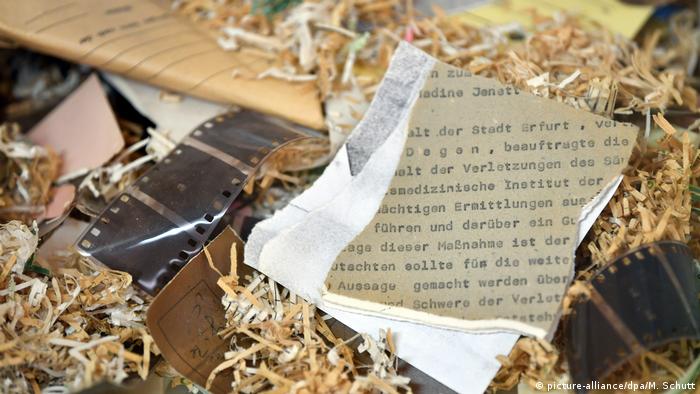 n zum
Nadine Jenett
alt der Stadt Erfurt , vert
D e g e n , beauftragte die
halt der Verletzungen des Säu
smedizinische Institut der
ächtigen Ermittlungen aus
führen und darüber ein Gu
age dieser Maßnahme ist der
utachten sollte für die weite
Aussage gemacht werden über
und Schwere der Verlet
tsteh
© picture-alliance/dpa/M. Schutt